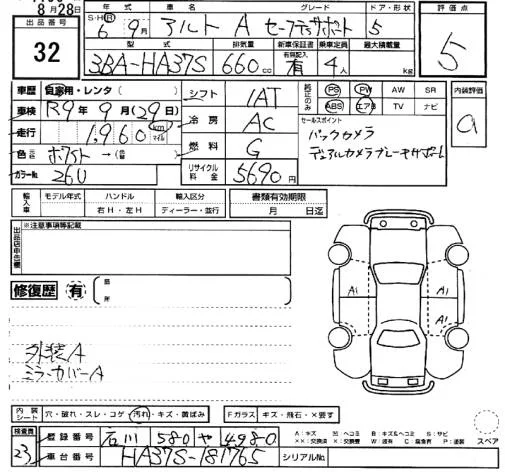 8月28日
年式 グレード ドア・形状 評価点
出品番号
S・H・R 6年 9月 アルト A セーフティサポート 5
32
型式 排気量 新車保証書 乗車定員 最大積載量
有無記入
3BA-HA37S 660cc 有 4人 kg
5
車歴 自家用・レンタ( )
シフト 1AT
純正のみ PS PW AW SR
ABS エアB TV ナビ
内装評価
a
車検 R9年 9月(29日)
走行 1,960 km マイル
冷房 AC
セールスポイント
バックカメラ
デュアルカメラブレーキサポート
色 元色 ホワイト→(色替 )
燃料 G
カラーNo. 26U
リサイクル料金 5690円
輸入車 モデル年式 ハンドル 輸入区分 書類有効期限
年 右H・左H ディーラー・並行 月 日迄
出品店申告書 ※注意事項等記載
修復歴 有 ( 部 所 )
A1 A1
外装A
ミラーカバーA
内装シート 穴・破れ・スレ・コゲ・汚れ・キズ・黄ばみ Fガラス キズ・飛石・×要す
A:キズ B:キズ&ヘコミ S:サビ
××:交換済 ×:交換要 W:波有 C:腐食有 P:塗装
スペア
検査員 23
登録番号 石川 580 や 4980
車台番号 HA37S-181765 シリアルNo.